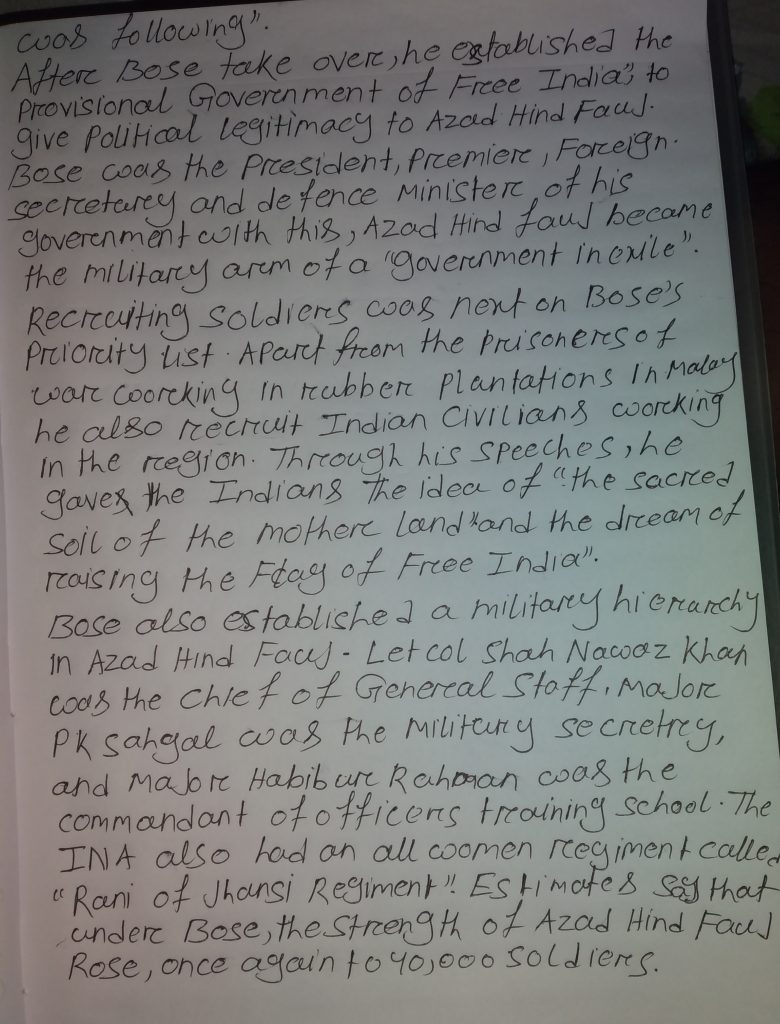 was following".
After Bose take over, he established the
Provisional Government of Free India", to
give Political legitimacy to Azad Hind Fauj.
Bose was the President, Premiere, Foreign.
secretary and defence Minister of his
government with this, Azad Hind fauj became
the military arm of a "government in exile".
Recruiting soldiers was next on Bose's
Priority list. Apart from the prisoners of
war working in rubber Plantations in Malay
he also recruit Indian Civilians working
in the region. Through his speeches, he
gaves the Indians the idea of "the sacred
soil of the mother land" and the dream of
raising the Flag of Free India".
Bose also established a military hierarchy
in Azad Hind Fauj - Let col Shah Nawaz Khan
was the Chief of General Staff. Major
PK Sahgal was the Military secretry,
and Major Habibur Rahman was the
commandant of officers training school. The
INA also had an all women regiment called
"Rani of Jhansi Regiment". Estimates say that
under Bose, the strength of Azad Hind Fauj
Rose, once again to 40,000 soldiers.